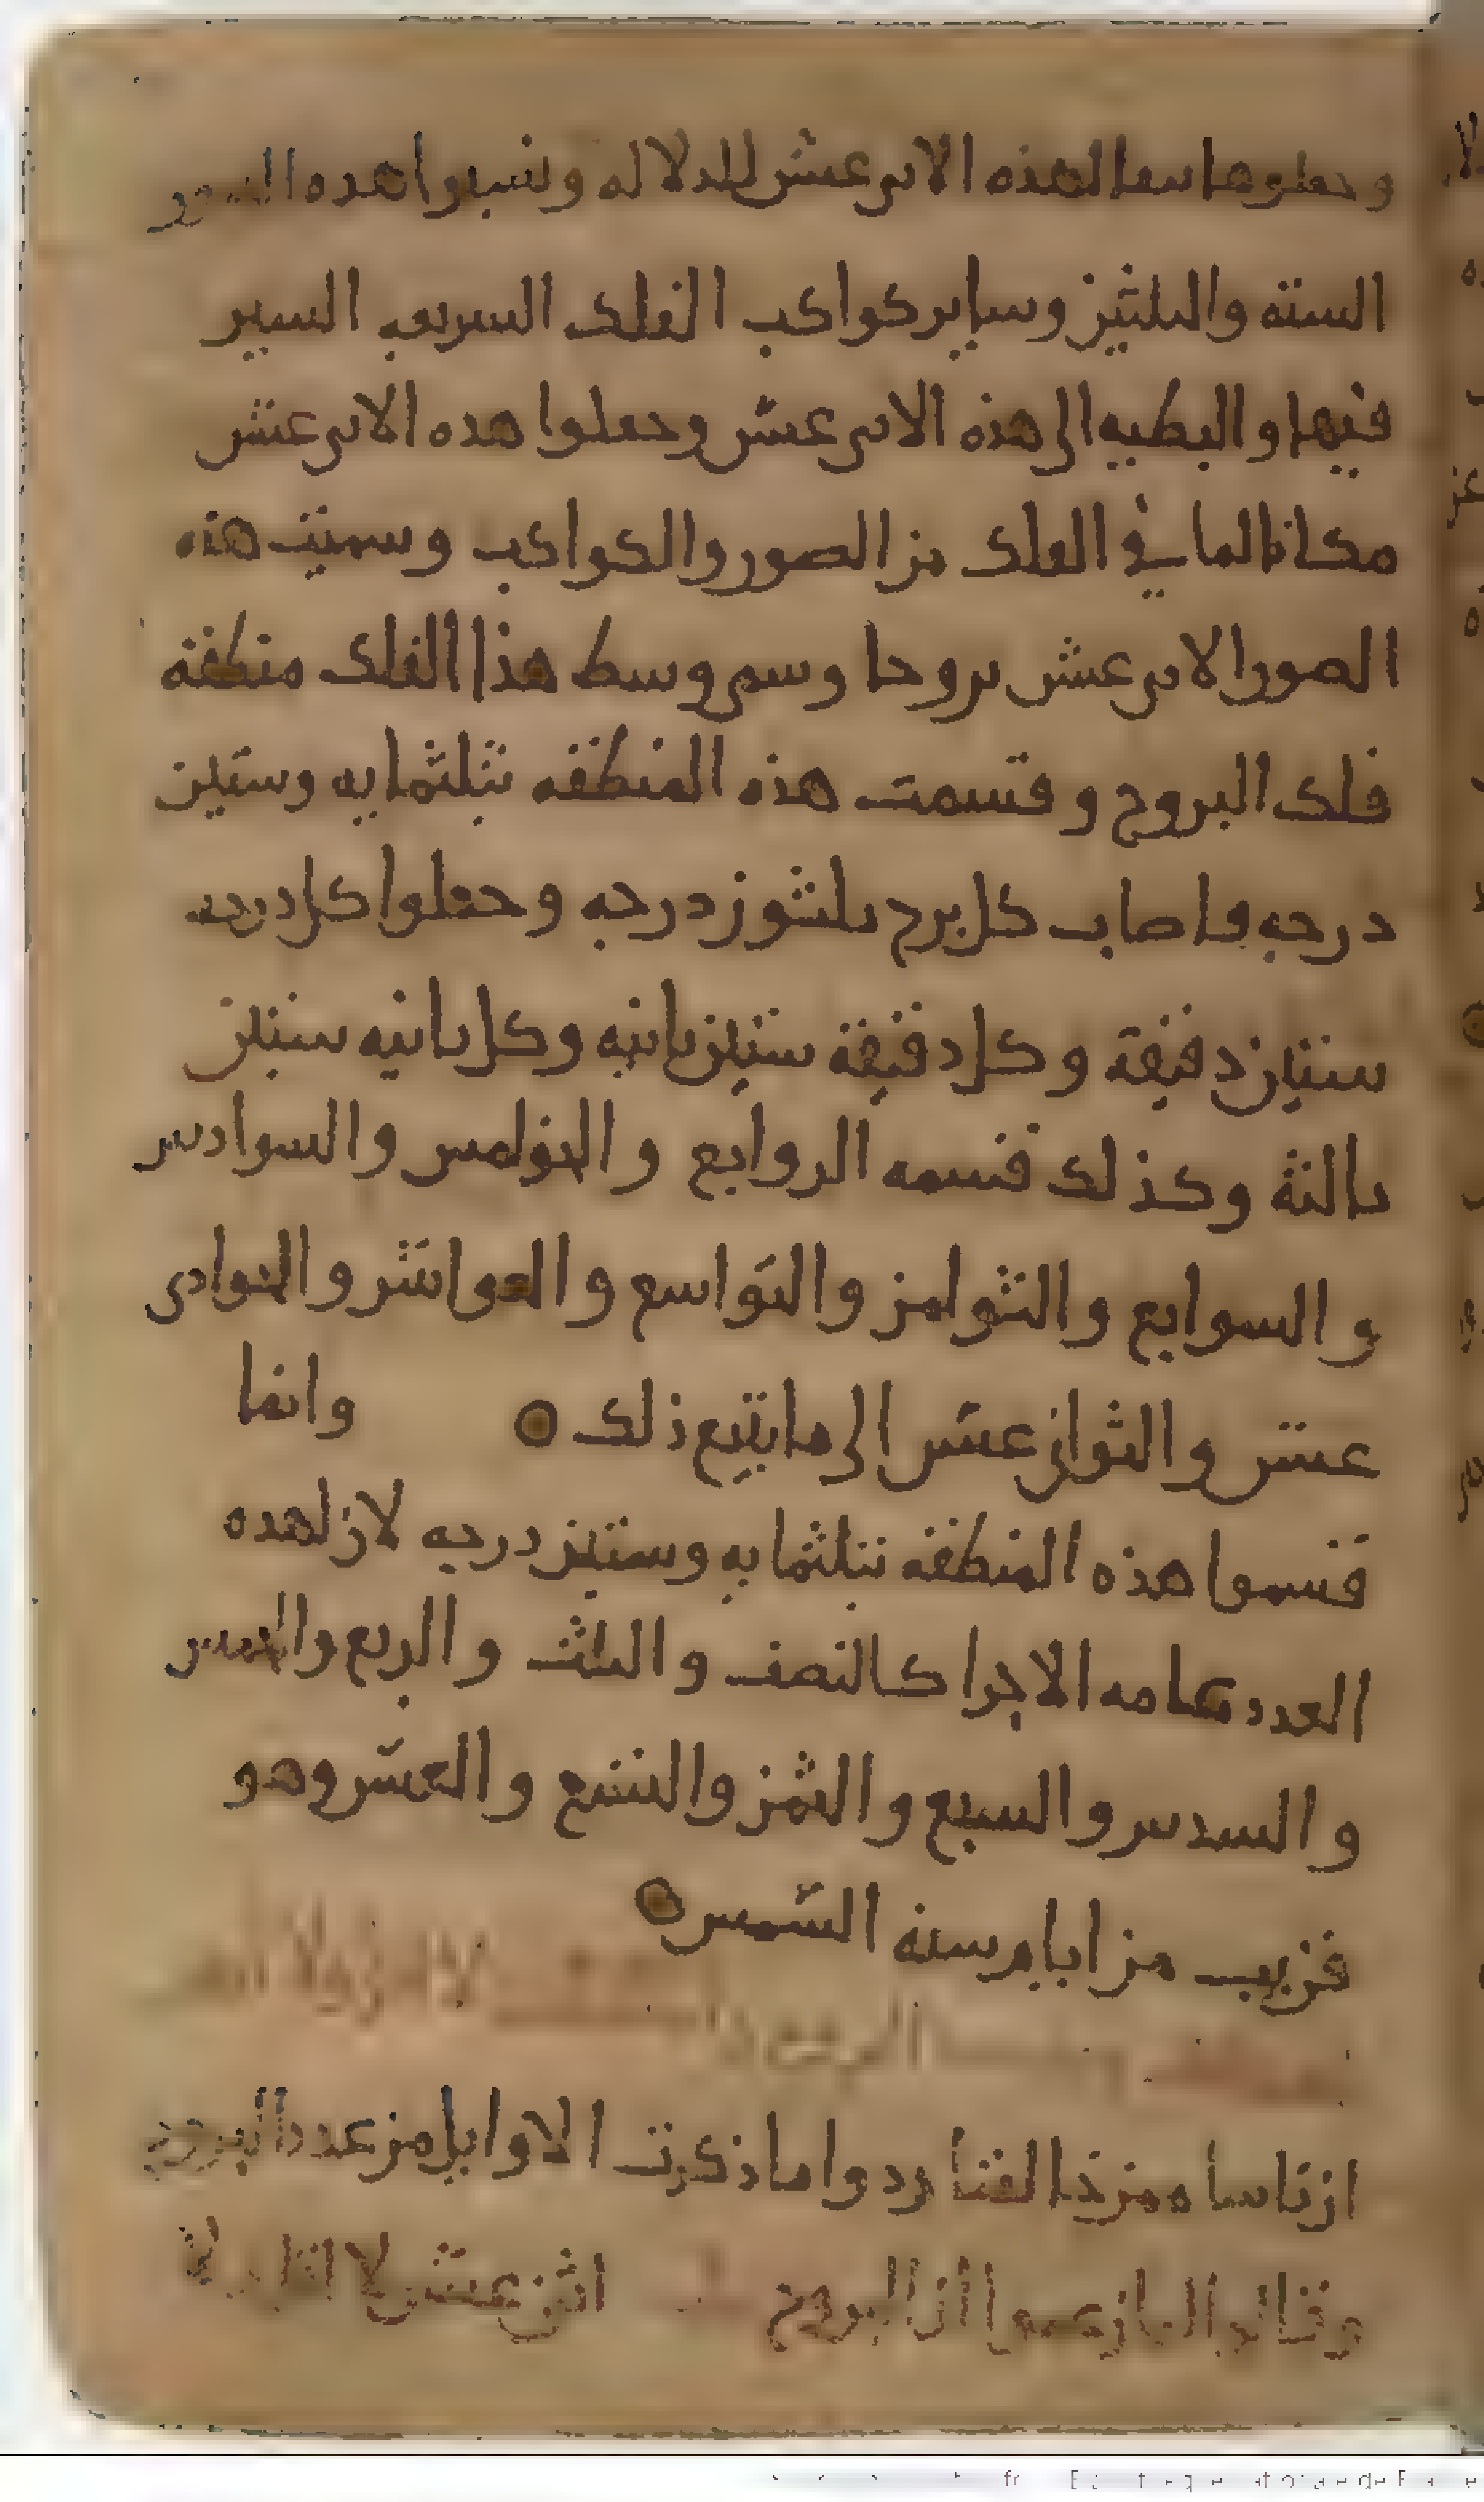 وجعلوها سعا لهذه الاثنى عشر للدلاله ونسبوا هذه الصور
الستة والثلثين وساير كواكب الفلك السريعه السير
فيها والبطيه الى هذه الاثنى عشر وجعلوا هذه الاثنى عشر
مكانا لما في الفلك من الصور والكواكب وسميت هذه
الصور الاثنى عشر بروجا وسمي وسط هذا الفلك منطقة
فلك البروج وقسمت هذه المنطقه بثلثمايه وستين
درجه فاصاب كل برج ثلثون درجه وجعلوا كل درجه
ستين دقيقة وكل دقيقة ستين ثانيه وكل ثانيه ستين
ثالثة وكذلك قسمه الروابع والخوامس والسوادس
والسوابع والثوامن والتواسع والعواشر والحوادى
عشر والثوانى عشر الى ما يتبع ذلك ٥ وانما
قسموا هذه المنطقه بثلثمايه وستين درجه لان لهذه
العدد عامه الاجزا كالنصف والثلث والربع والخمس
والسدس والسبع والثمن والتسع والعشر وهو
قريب من ايام سنة الشمس ٥
ان ناسا من القدما ردوا ما ذكرت الاوايل من عدد البروج
وقالوا ان البروج اثنى عشر لانا